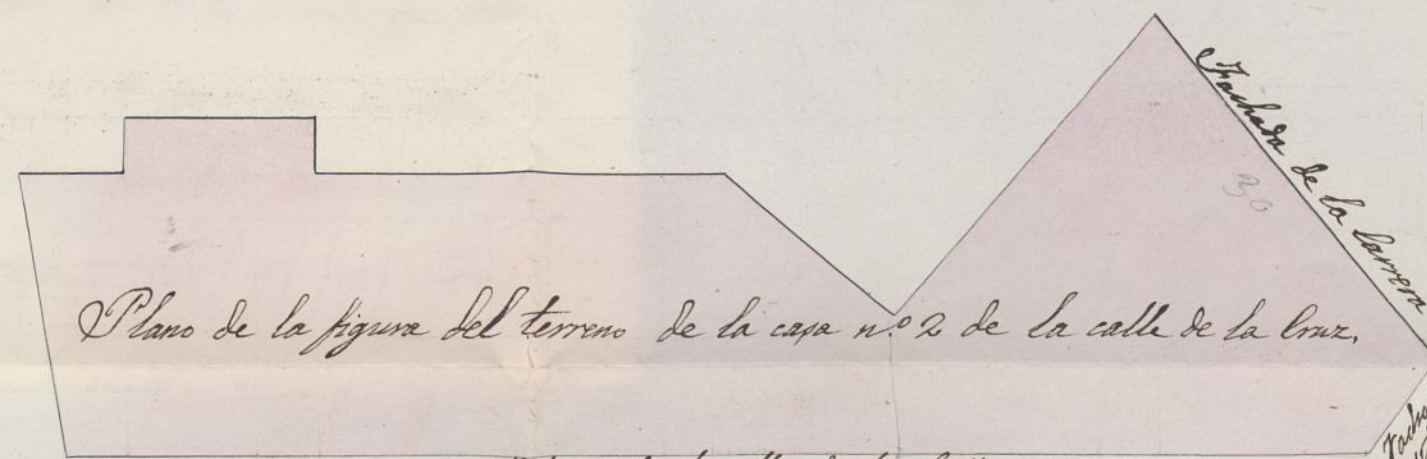 Fachada de la Carrera
30
Plano de la figura del terreno de la casa n.º 2 de la calle de la Cruz.